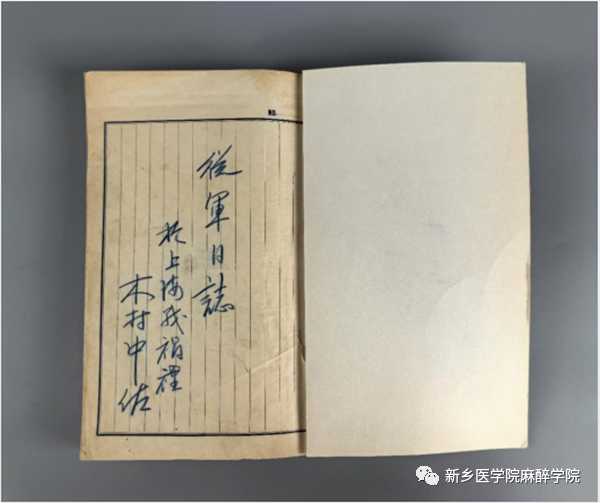 NO.
從軍日誌
於上海戦禍裡
木村中佐
新乡医学院麻醉学院